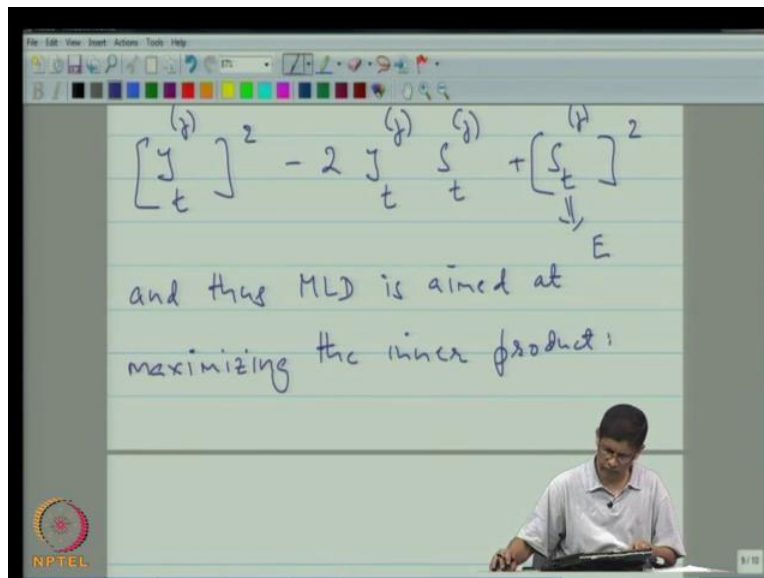 File Edit View Insert Actions Tools Help
[y_t^(j)]^2 - 2 y_t^(j) s_t^(j) + [s_t^(j)]^2
⇓
E
and thus MLD is aimed at
maximizing the inner product:
NPTEL